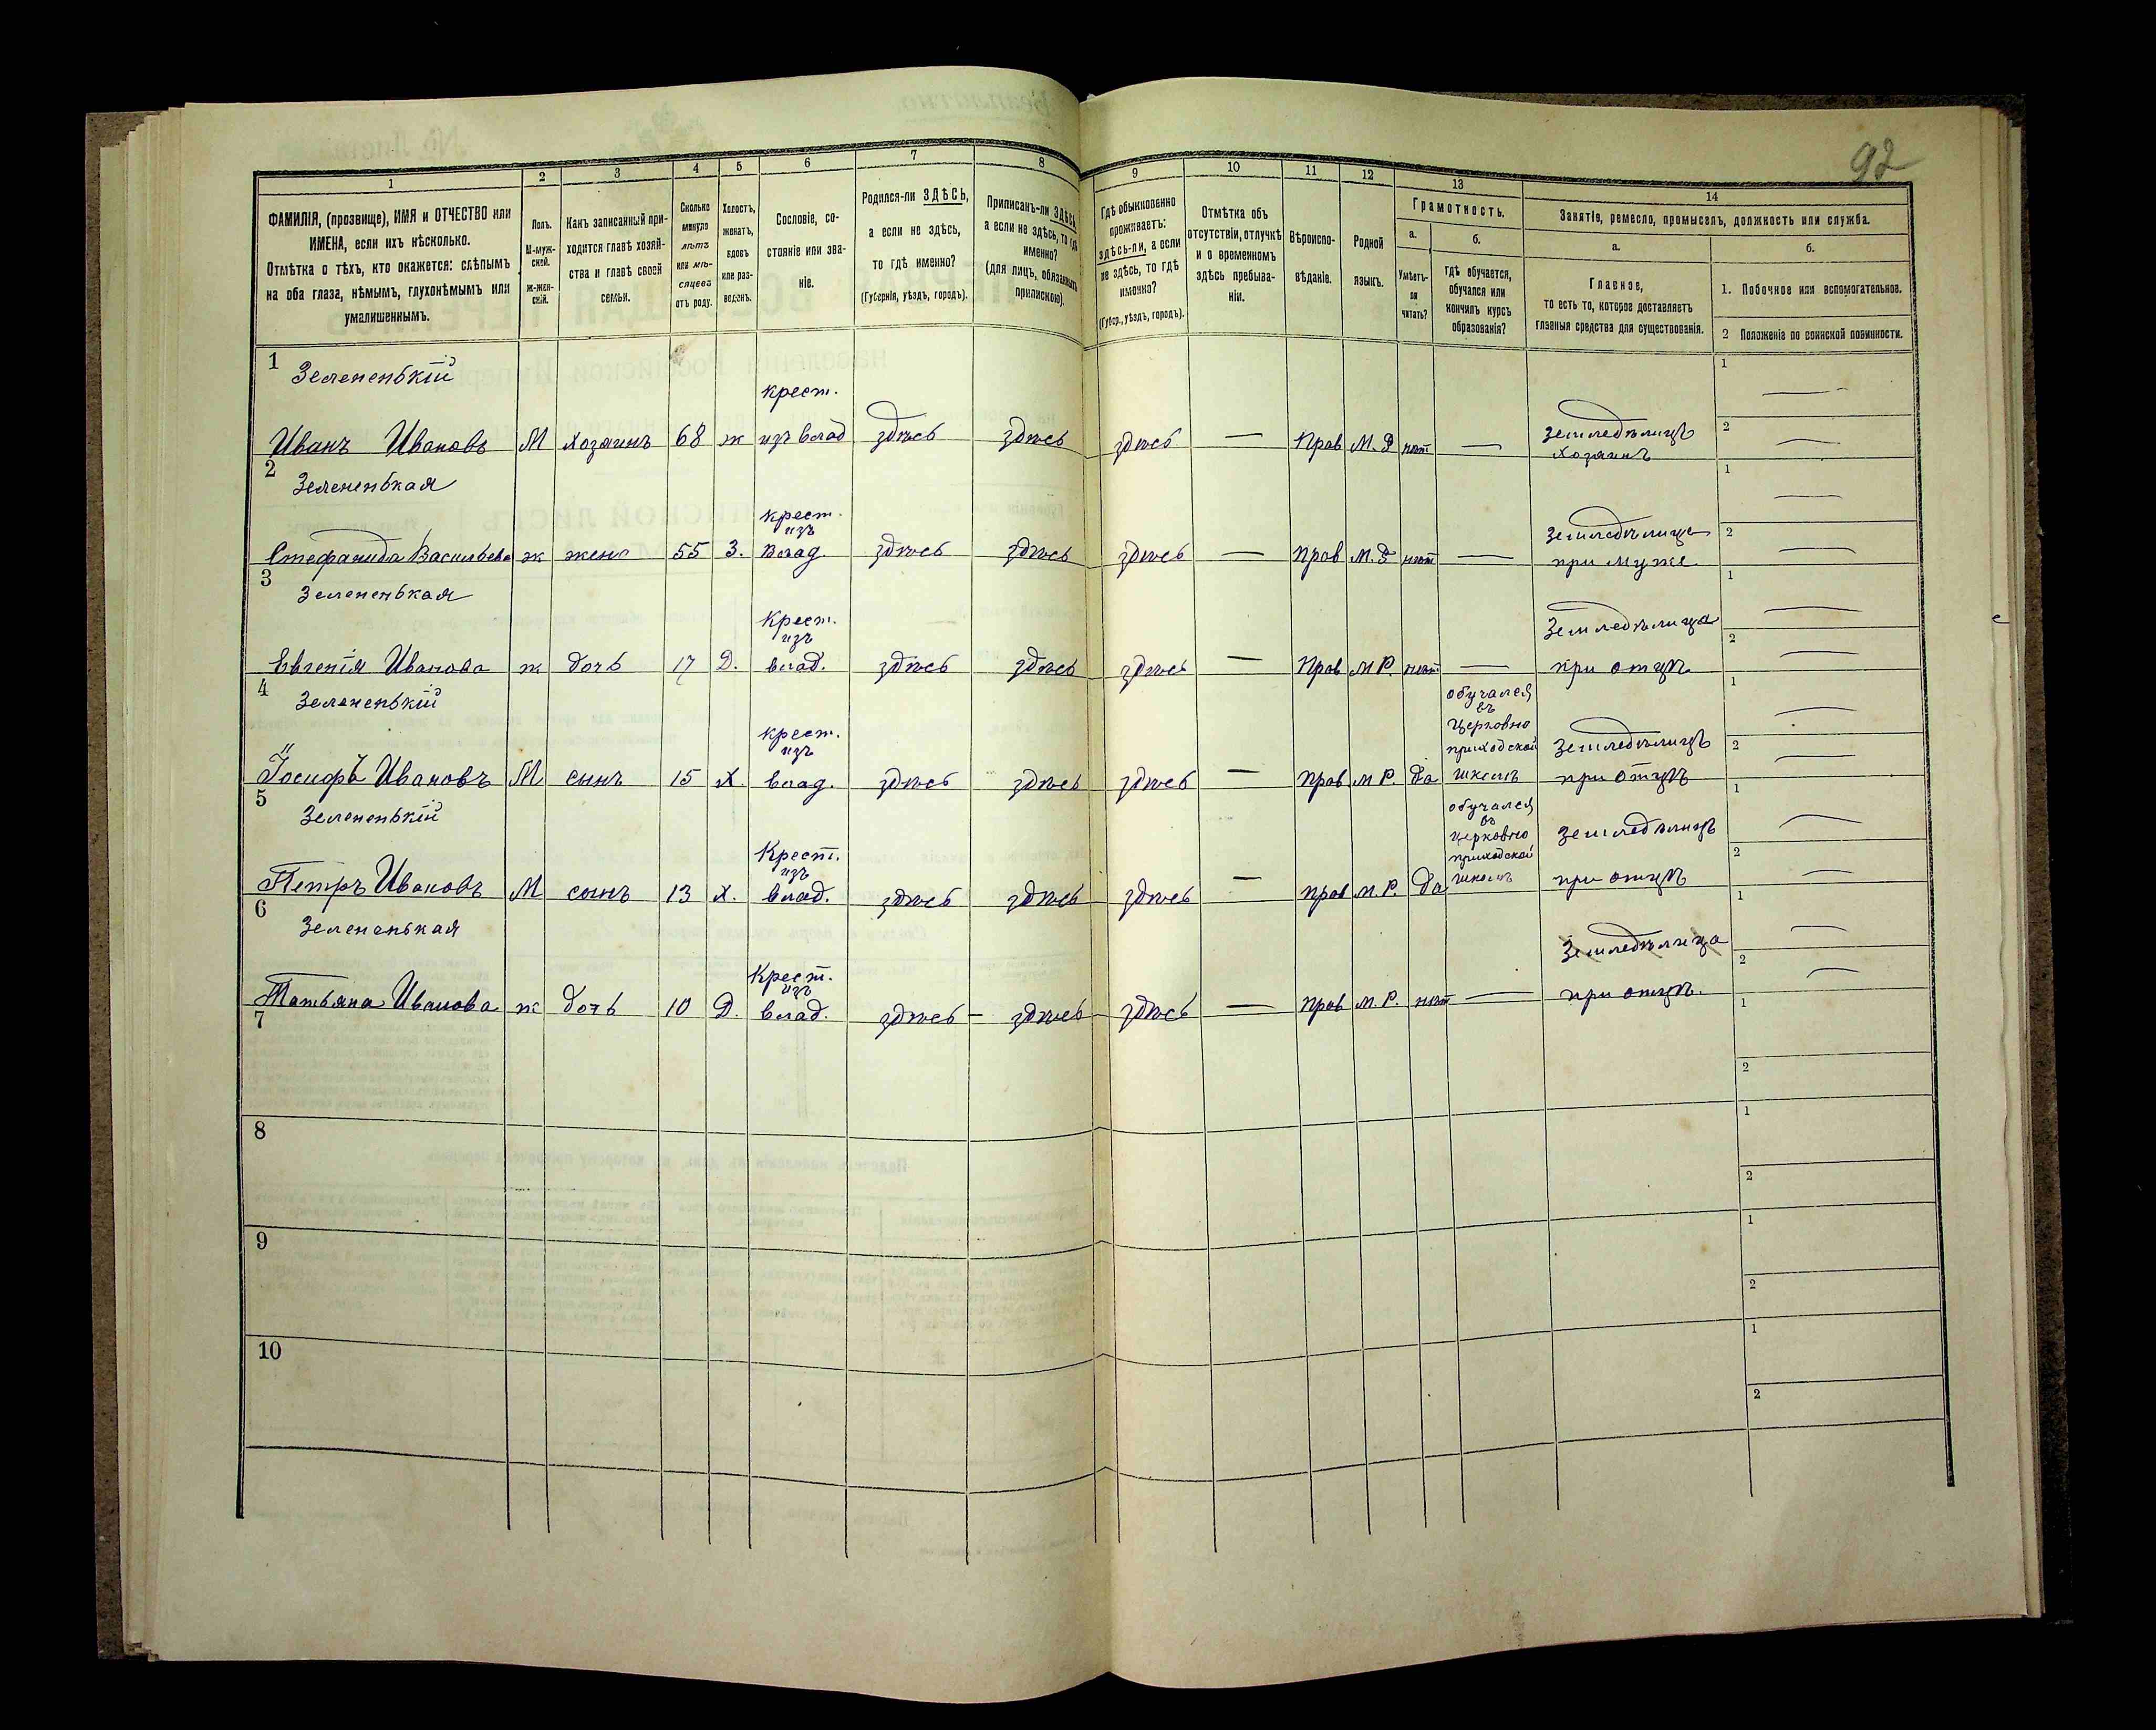 92
1 2 3 4 5 6 7 8 9 10 11 12 13 14
ФАМИЛІЯ, (прозвище), ИМЯ и ОТЧЕСТВО или
ИМЕНА, если ихъ нѣсколько.
Отмѣтка о тѣхъ, кто окажется: слѣпымъ
на оба глаза, нѣмымъ, глухонѣмымъ или
умалишеннымъ.
Полъ.
М-муж-
ской.
Ж-жен-
скій.
Какъ записанный при-
ходится главѣ хозяй-
ства и главѣ своей
семьи.
Сколько
минуло
лѣтъ
или мѣ-
сяцевъ
отъ роду.
Холостъ,
женатъ,
вдовъ
или раз-
веденъ.
Сословіе, со-
стояніе или зва-
ніе.
Родился-ли ЗДѢСЬ,
а если не здѣсь,
то гдѣ именно?
(Губернія, уѣздъ, городъ).
Приписанъ-ли ЗДѢСЬ,
а если не здѣсь, то гдѣ
именно?
(для лицъ, обязанныхъ
припискою).
Гдѣ обыкновенно
проживаетъ:
здѣсь-ли, а если
не здѣсь, то гдѣ
именно?
(Губер., уѣздъ, городъ).
Отмѣтка объ
отсутствіи, отлучкѣ
и о временномъ
здѣсь пребыва-
ніи.
Вѣроиспо-
вѣданіе.
Родной
языкъ.
Грамотность.
а. б.
Умѣетъ-
ли
читать?
гдѣ обучается,
обучался или
кончилъ курсъ
образованія?
Занятіе, ремесло, промыселъ, должность или служба.
а. б.
Главное,
то есть то, которое доставляетъ
главныя средства для существованія.
1. Побочное или вспомогательное.
2 Положеніе по воинской повинности.
1 Зелененькій
крест.
Иванъ Ивановъ М хозяинъ 68 ж изъ влад здѣсь здѣсь здѣсь — Прав М. Р нѣт — земледѣлецъ
хозяинъ
1 —
2 —
2 Зелененькая
крест.
изъ
Стефанида Васильева ж жена 55 З. влад. здѣсь здѣсь здѣсь — Прав М. Р нѣт — земледѣлица
при мужѣ
1 —
2 —
3 Зелененькая
Крест.
изъ
Евгенія Иванова ж дочь 17 Д. влад. здѣсь здѣсь здѣсь — Прав М Р. нѣт — Земледѣлица
при отцѣ
1 —
2 —
4 Зелененькій
крест.
изъ
Іосифъ Ивановъ М сынъ 15 Х. влад. здѣсь здѣсь здѣсь — прав М Р. да
обучался
въ
церковно
приходской
школѣ
земледѣлецъ
при отцѣ
1 —
2 —
5 Зелененькій
Крест.
изъ
Петръ Ивановъ М сынъ 13 Х. влад. здѣсь здѣсь здѣсь — прав М. Р. да
обучался
въ
церковно
приходской
школѣ
земледѣлецъ
при отцѣ
1 —
2 —
6 Зелененькая
Крест.
изъ
Татьяна Иванова ж дочь 10 Д. влад. здѣсь — здѣсь — здѣсь — прав М. Р. нѣт — Земледѣлица
при отцѣ.
1 —
2 —
7
1
2
8
1
2
9
1
2
10
1
2